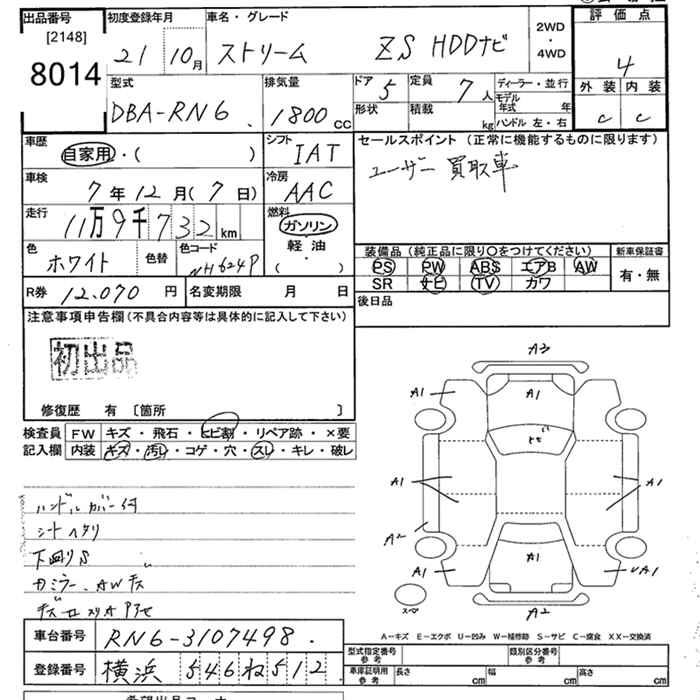 出品番号 初度登録年月 車名・グレード 2WD・4WD 評価点
[2148]
8014 21 10月 ストリーム ZS HDDナビ 4
型式 排気量 ドア 5 定員 7人 ディーラー・並行 外装 内装
DBA-RN6 1800cc 形状 積載 kg モデル年式 年 C C
ハンドル 左・右
車歴 シフト セールスポイント (正常に機能するものに限ります)
自家用・( ) IAT ユーザー買取車
車検 7年12月(7日) 冷房 AAC
走行 11万9千732km 燃料 ガソリン 軽油・( )
色 ホワイト 色替 色コード NH624P
装備品 (純正品に限り○をつけてください) 新車保証書
PS PW ABS エアB AW 有・無
SR ナビ TV カワ
R券 12,070円 名変期限 月 日 後日品
注意事項申告欄(不具合内容等は具体的に記入して下さい)
初出品
修復歴 有 〔箇所 〕
検査員 FW キズ・飛石・ヒビ割・リペア跡・×要
記入欄 内装 キズ・汚レ・コゲ・穴・スレ・キレ・破レ
A3
A1 A1
ハンドルカバー付
シートヘタリ
下回りS
カミラー、AWキズ
A1 A1
A2
A1 A1 UA1
スペ A2
A-キズ E-エクボ U-凹み W-補修跡 S-サビ C-腐食 XX-交換済
車台番号 RN6-3107498.
登録番号 横浜 546ね512
型式指定番号 参考 類別区分番号 参考
車庫証明用 参考 長さ cm 幅 cm 高さ cm